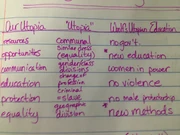 Our Utopia "Utopia" Woth's Utopian Education
resources communal no gov't
opportunities similar dress (equality) * new education
communication gender/class divisions women in power
education change of profession no violence
protection criminal = slave no male protectorship
equality geographic division * new methods